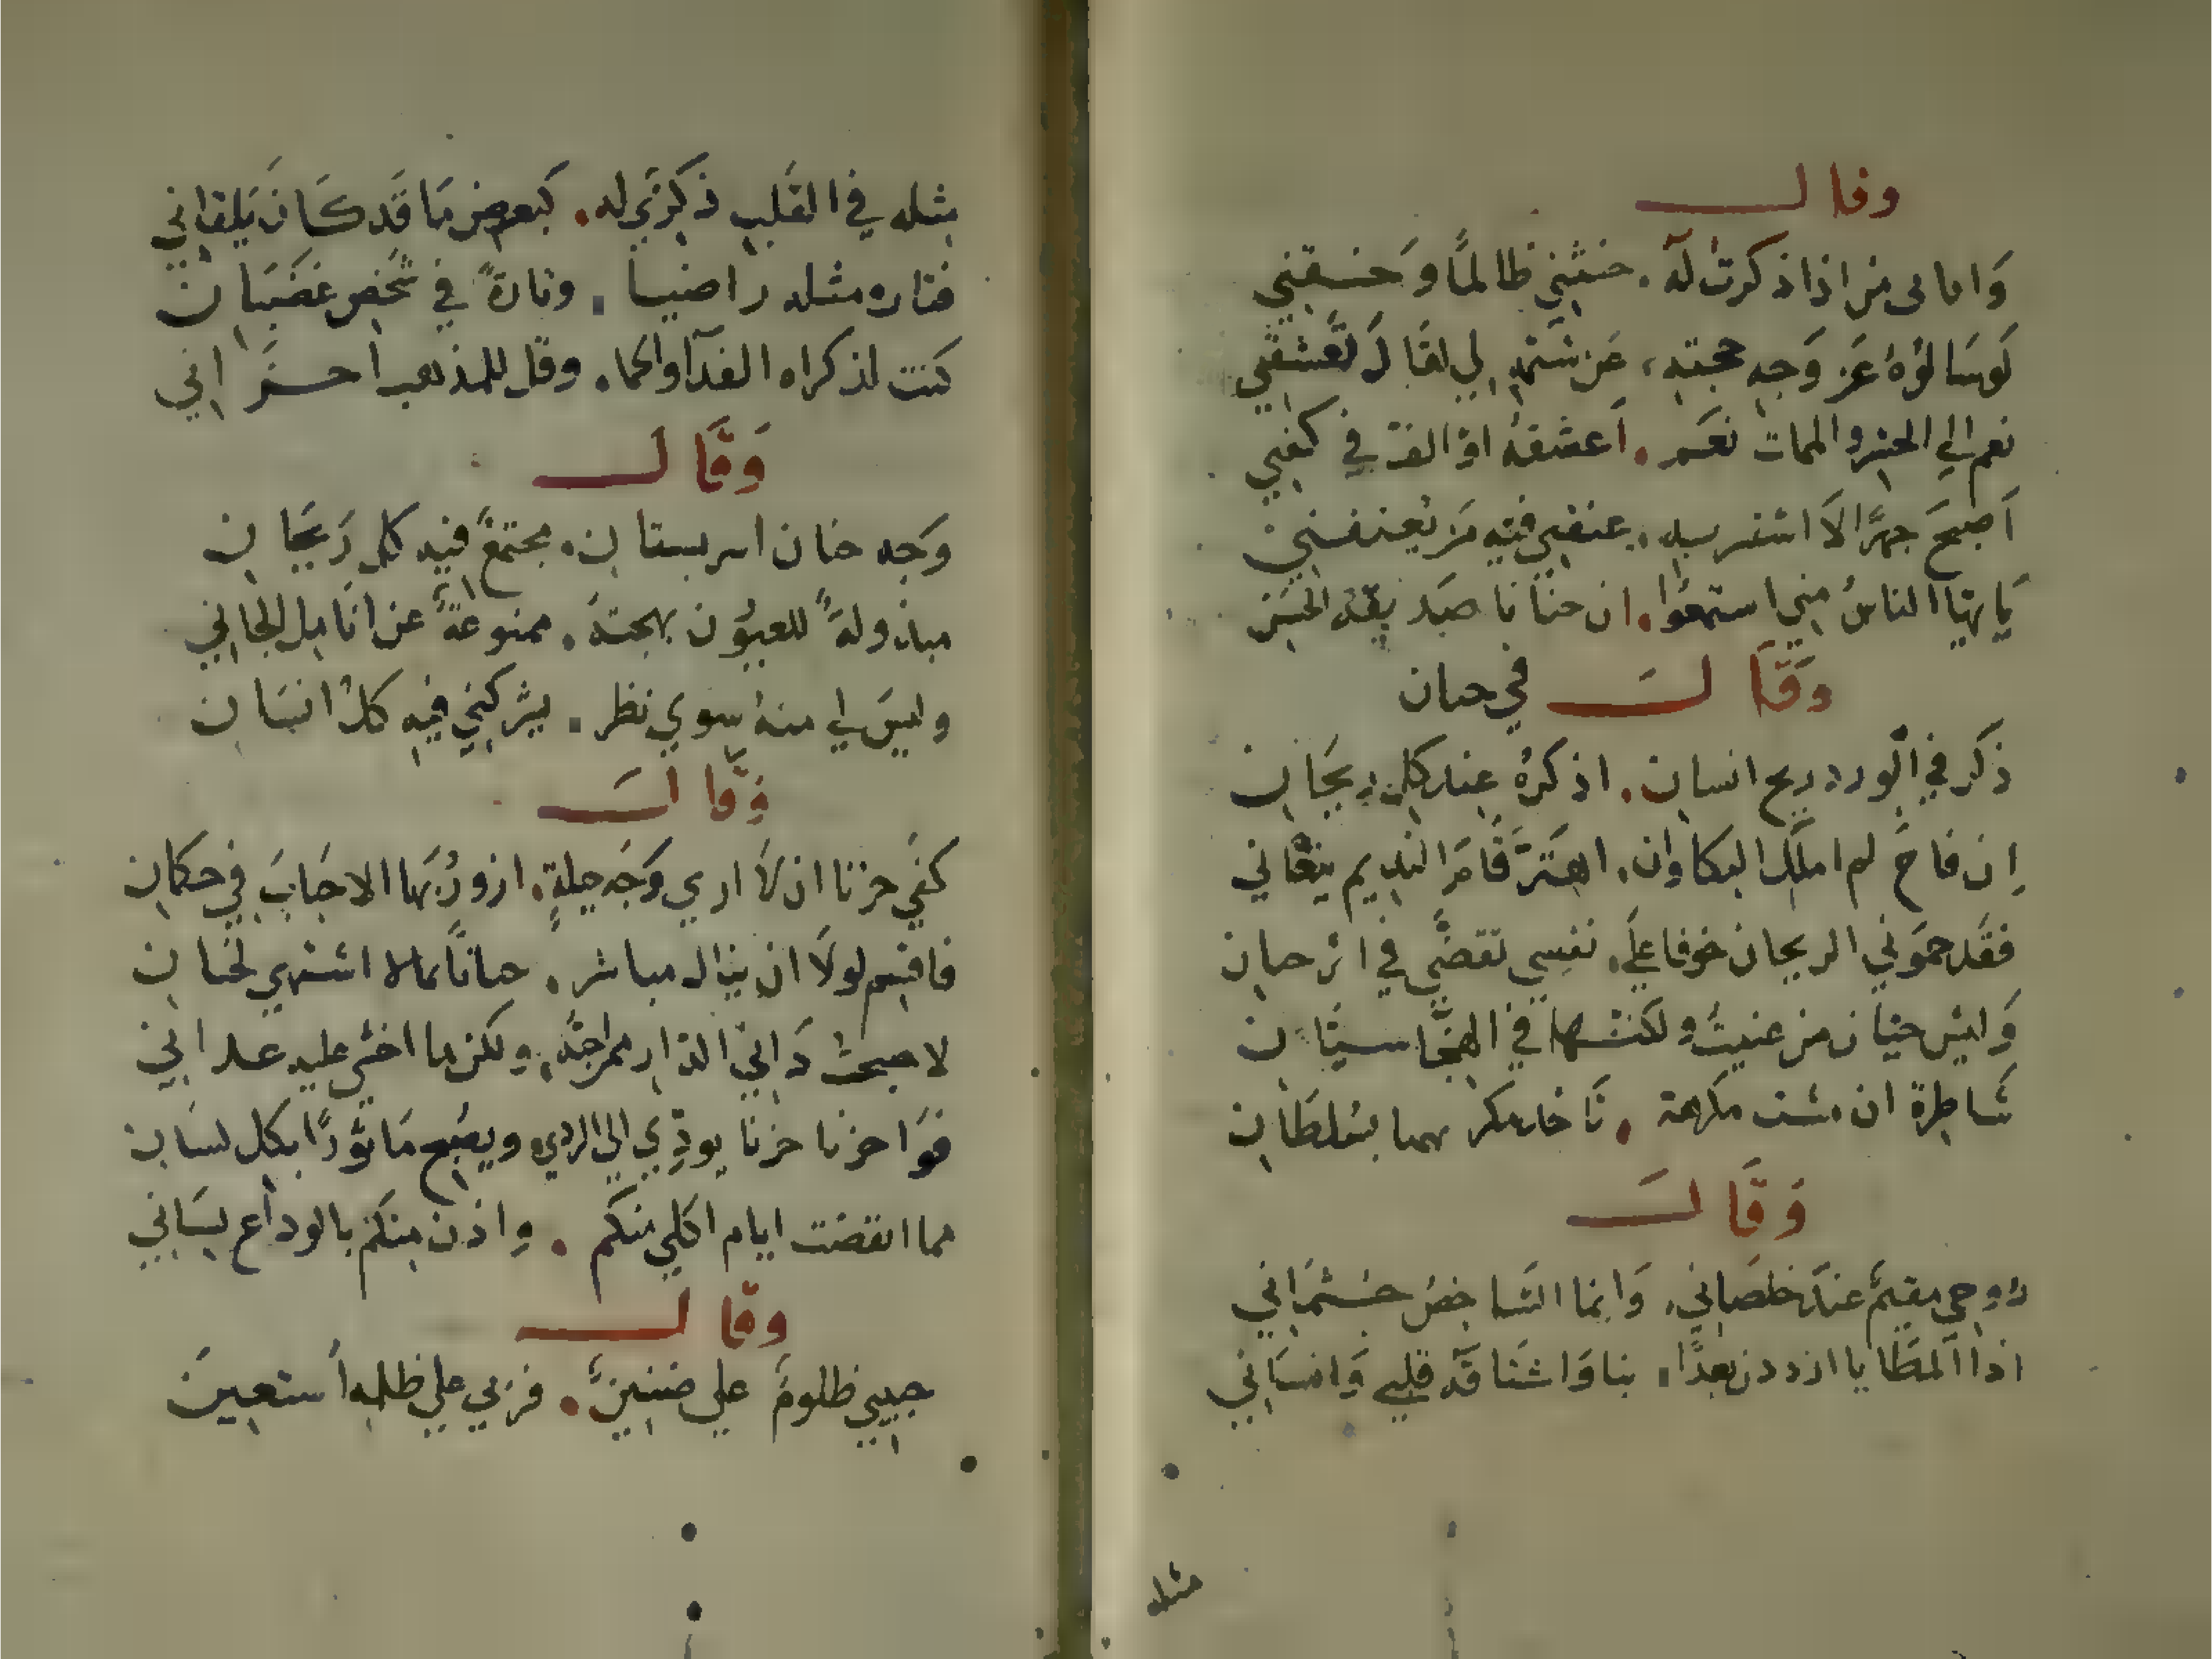 وقال
وَابابى من اذا ذكرت له . خنثني ظالمًا وَخسقني
لَوسَالوُهُ عَن وَجهِ حجته ، عَن شَتمِهِ لي لقَالَ تعشقني
نعم الي الحشر والممات نعَم . اعشقهُ اوْ الف في كفني
اَصبحَ جهرًا لاَ استسر به . عنفني فيه مَن يُعنفنني
يَا ايها الناسُ مني استمعُوا . ان حنانا صَد بقهُ الحسَن
وَقَالَ في حنان
ذَكر في الورد ريح انسان . اذكرُهُ عند كل ريحَان
اِن فاحَ لم املك البكا وان . اهتَزَّ قَامَ النديم ينعَاني
فقَد حمَوني الريحان خوفا علَي . نفسي تقضَّي في اثر حنان
وَليْسَ حنان من عنيتُ ولكنها في الهجَا سيَّان
شاطِرة ان مشت مكرهة . تَا خذ مكر بها بسُلطَان
وَقَالَ
روحي مقيمٌ عندَ خلصَاني . وَانما الشاخصُ جسْمَاني
اذا المطَايا ازددن بعدًا . بنا وَاشتَاقَه قلبي وَانسَاني
مثله
مثله في القلب ذكرَي له . كبعض مَا قَد كَانَ يَلقاني
فتاره مثله راضيا . وتارةً في شخص غضبَان
كنت لذكراه الفدآ والحما . وقل للمذهب احزَاني
وَقَالَ
وَجه حنان ام بستان . مجتمعٌ فيه كل رَيحَان
مبذولةٌ للعيوُن بهجتهُ . ممنوعةٌ عن انَامل الجاني
وليسَ لي منهُ سِوي نظر . يشركني فيهِ كلُ انسَان
وَقَالَ
كفي حزنا ان لاَ اري وَجه حيلةٍ . ازورُ بهَا الاحبَابَ في حكمان
فاقسم لولاَ ان ينال مباشر . حنانًا بمالا اشتهي لحنان
لاصبحتُ دَاني الدار ممن احبهُ . ولكن ما اخشي عليه عدَاني
فوَا حزنا حزنا يوَدِّي الي الردي ويصبح مَاثورًا بكل لسَان
مما انقضت ايام اكلي منكم . وِاذن منكم بالوداع لسَاني
وقال
حبيبي ظلومٌ علي ضنينٌ . فربي علي ظلمه اَستعينَ